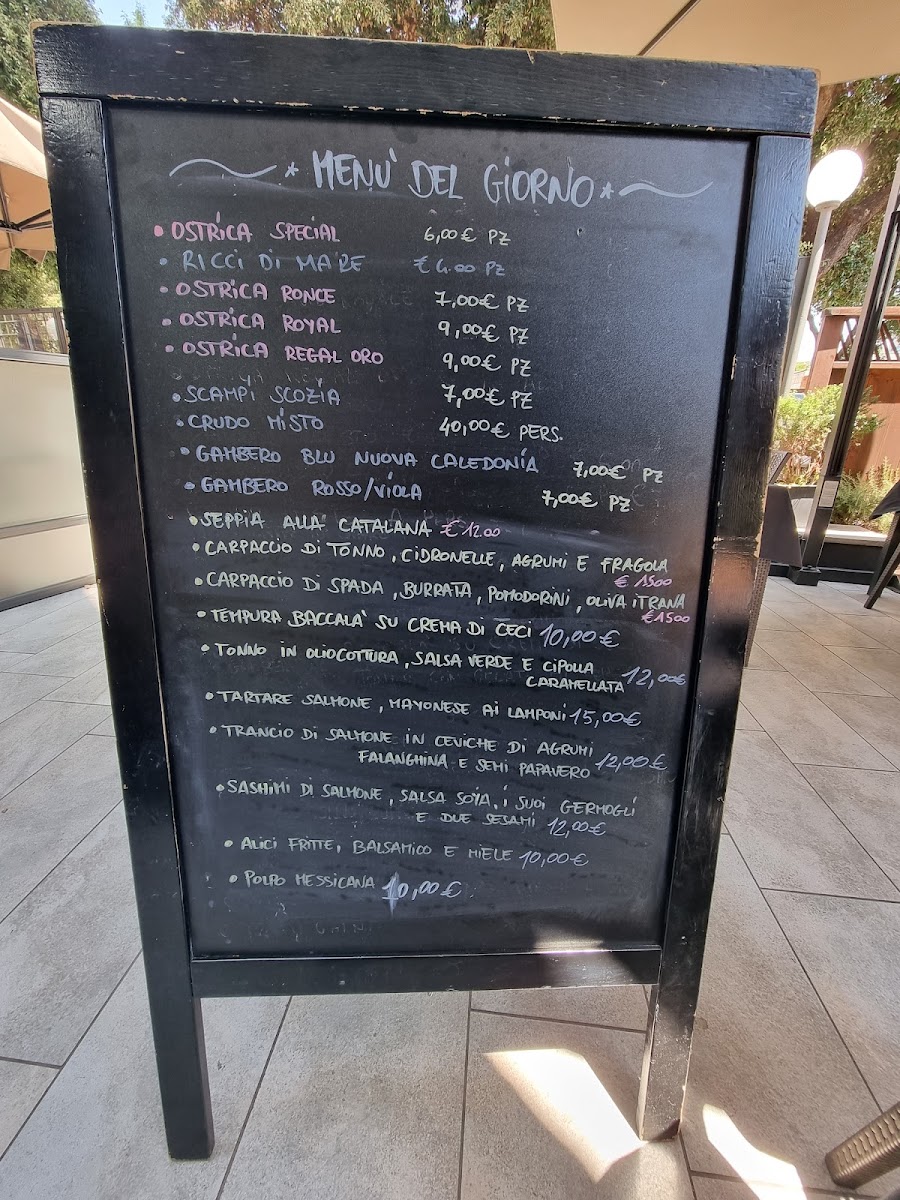 MENÙ DEL GIORNO
• OSTRICA SPECIAL 6,00€ PZ
• RICCI DI MARE €4.00 PZ
• OSTRICA RONCE 7,00€ PZ
• OSTRICA ROYAL 9,00€ PZ
• OSTRICA REGAL ORO 9,00€ PZ
• SCAMPI SCOZIA 7,00€ PZ
• CRUDO MISTO 40,00€ PERS.
• GAMBERO BLU NUOVA CALEDONIA 7,00€ PZ
• GAMBERO ROSSO/VIOLA 7,00€ PZ
• SEPPIA ALLA CATALANA € 12.00
• CARPACCIO DI TONNO, CIDRONELLE, AGRUMI E FRAGOLA
€ 1500
• CARPACCIO DI SPADA, BURRATA, POMODORINI, OLIVA ITRANA
€ 1500
• TEMPURA BACCALA' SU CREMA DI CECI 10,00€
• TONNO IN OLIOCOTTURA, SALSA VERDE E CIPOLLA
CARAMELLATA 12,00€
• TARTARE SALMONE, MAYONESE AI LAMPONI 15,00€
• TRANCIO DI SALMONE IN CEVICHE DI AGRUMI
FALANGHINA E SEMI PAPAVERO 12,00€
• SASHIMI DI SALMONE, SALSA SOIA, I SUOI GERMOGLI
E DUE SESAMI 12,00€
• ALICI FRITTE, BALSAMICO E MIELE 10,00€
• POLPO MESSICANA 10,00€